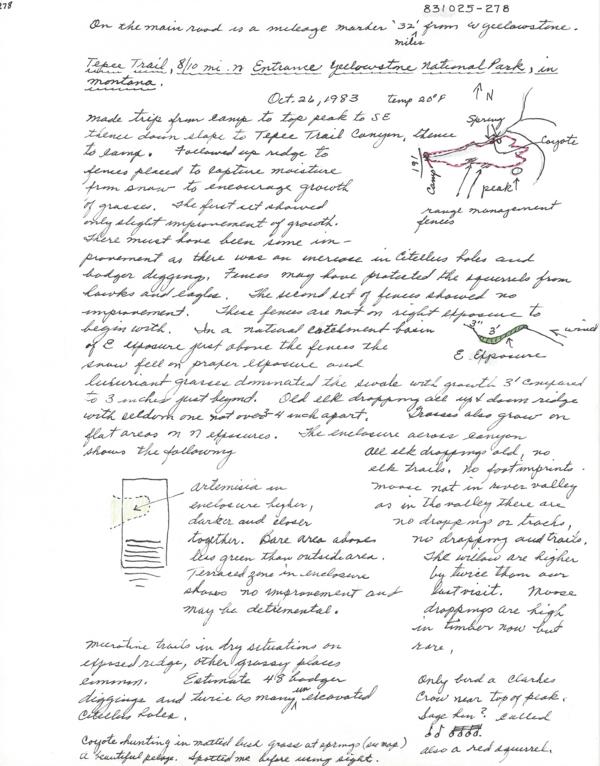 278
831025-278
On the main road is a mileage marker '32' from W Yellowstone.
miles
Tepee Trail, 8/10 mi. N Entrance Yellowstone National Park, in
Montana.
Oct. 26, 1983 temp 20°F
N
made trip from camp to top peak to SE
thence down slope to Tepee Trail Canyon, thence
to camp. Followed up ridge to
fences placed to capture moisture
from snow to encourage growth
of grasses. The first set showed
only slight improvement of growth.
There must have been some im-
Spring
Coyote
191
Camp
peak
range management
fences
provement as there was an increase in Citellus holes and
badger digging. Fences may have protected the squirrels from
hawks and eagles. The second set of fences showed no
improvement. These fences are not on right exposure to
begin with. In a natural catchment basin
of E exposure just above the fences the
snow fell on proper exposure and
3" 3'
wind
E. Exposure
luxuriant grasses dominated the swale with growth 3' compared
to 3 inches just beyond. Old elk dropping all up & down ridge
with seldom one not over 3-4 inch apart. Grasses also grow on
flat areas on N exposures. The enclosure across canyon
shows the following
Artemisia in
enclosure higher,
darker and closer
together. Bare area above
less green than outside area.
Terraced zone in enclosure
shows no improvement and
may be detremental.
All elk droppings old, no
elk trails. No foot imprints.
Moose not in river valley
as in the valley there are
no dropping or tracks,
no dropping and trails.
The willow are higher
by twice than our
last visit. Moose
droppings are high
in timber now but
rare.
Microtine trails in dry situations on
exposed ridge, other grassy places
common. Estimate 43 badger
diggings and twice as many un excavated
Citellus holes.
Coyote hunting in matted bush grass at springs (see map)
a beautiful pelage. Spotted me before using sight.
Only bird a Clarkes
Crow near top of peak.
Sage hen? called
also a red squirrel.